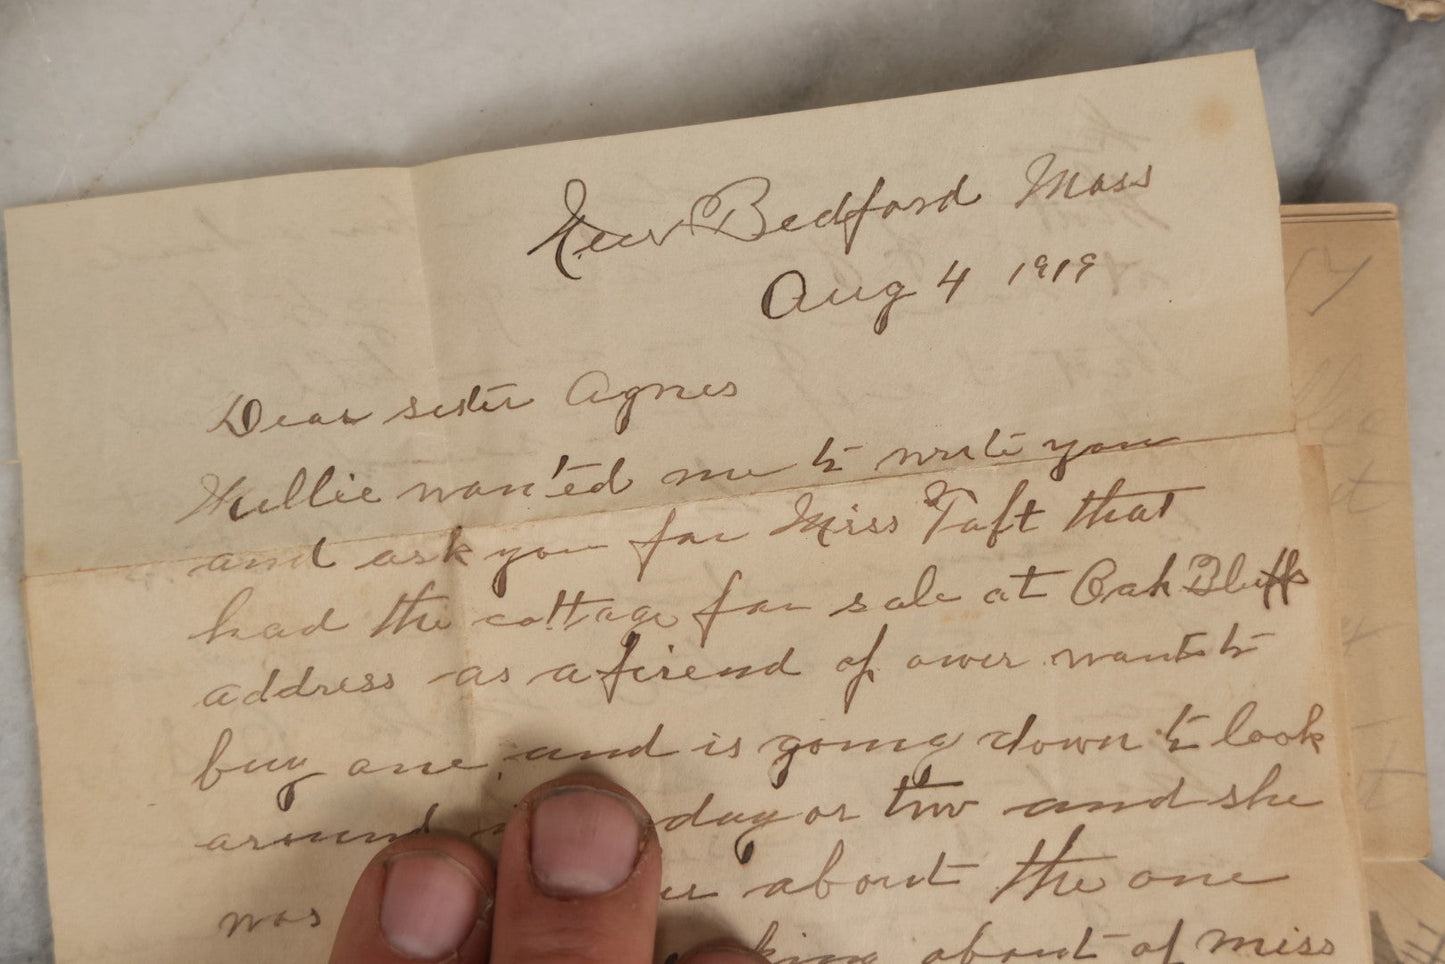 New Bedford Mass
Aug 4 1919
Dear sister Agnes
Nellie wanted me to write you
and ask you for Miss Taft that
had the cottage for sale at Oak Bluffs
address as a friend of ower wants to
buy one, and is going down to look
around day or two and she
was about the one
king about of miss